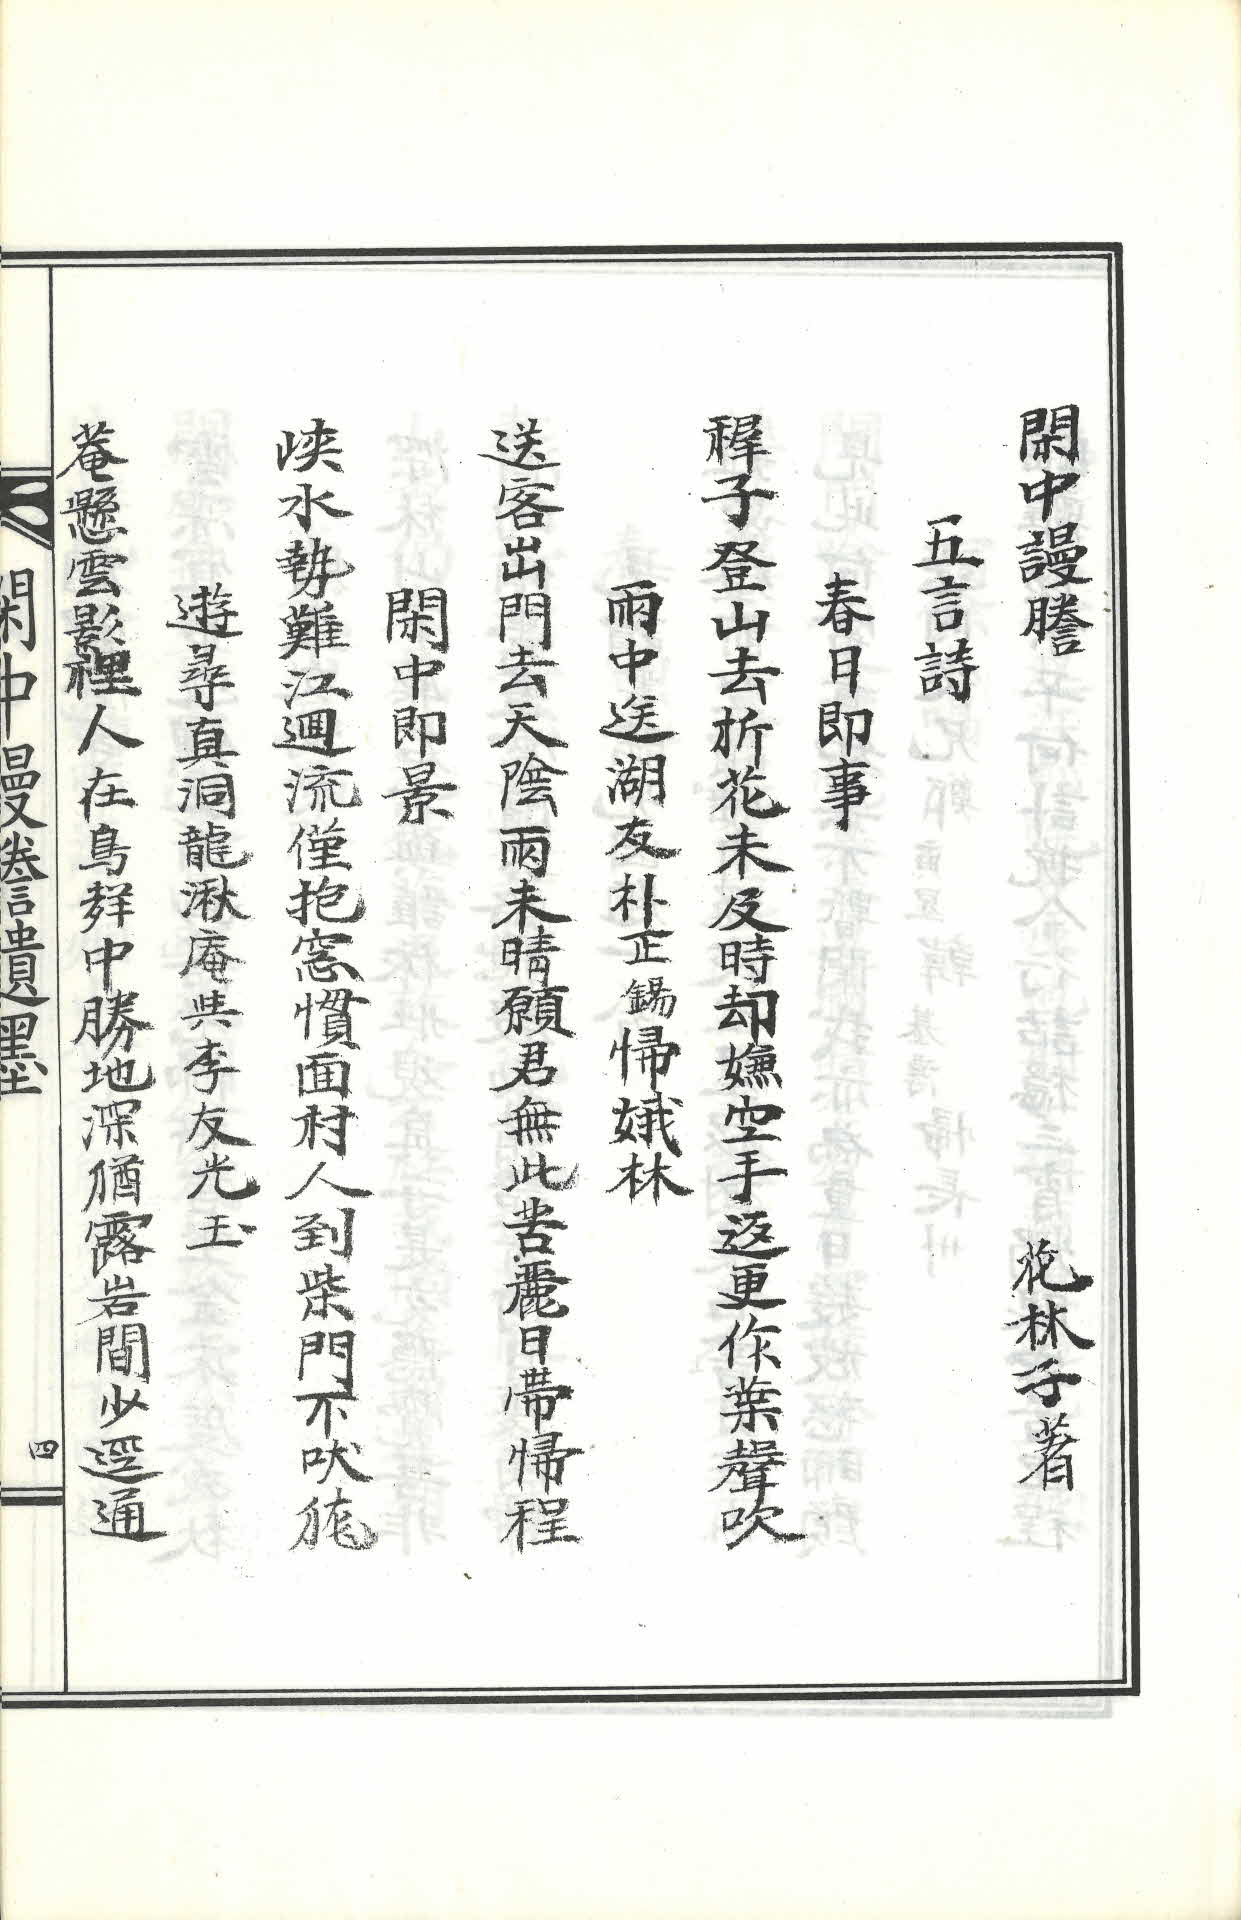 閑中謾謄 花林子著
五言詩
春日即事
稺子登山去折花未及時却嫌空手返更作葉聲吹
雨中送湖友朴正錫歸娥林
送客出門去天陰雨未晴願君無此苦麗日帶歸程
閑中即景
峽水勢難江迴流僅抱窓慣面村人到柴門不吠狵
遊尋真洞龍湫庵與李友光玉
菴懸雲影裡人在鳥群中勝地深猶露岩間少逕通
閑中謾謄遺墨
四